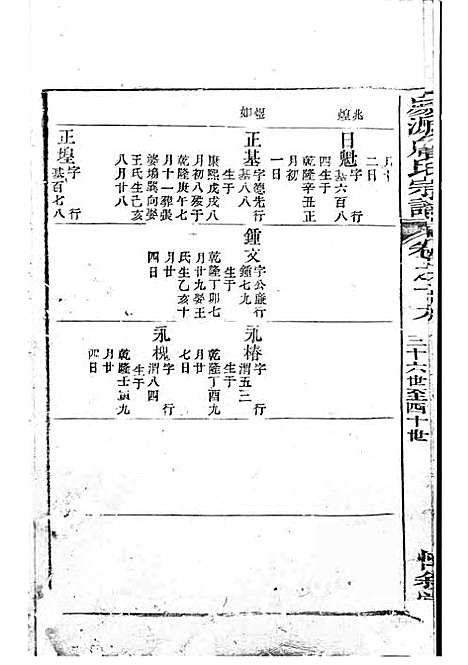 三十六世至四十世
兆煌
月廿
二日
日魁字 行
基六百八
四生于
乾隆辛丑正
月初
一日
煜如
正基字德先行
基八八
生于
康熙戊戌八
月初八歿于
乾隆庚午七
月十一葬裝
婆塢巽向娶
王氏生己亥
八月廿八
鍾文字公廉行
鍾七九
生于
乾隆丁卯七
月廿九娶王
氏生乙亥十
四日
永椿字 行
渭五三
生于
乾隆丁酉九
月廿
七日
永槐字 行
渭八四
生于
乾隆壬寅九
月廿
四日
正堭字 行
基百七八